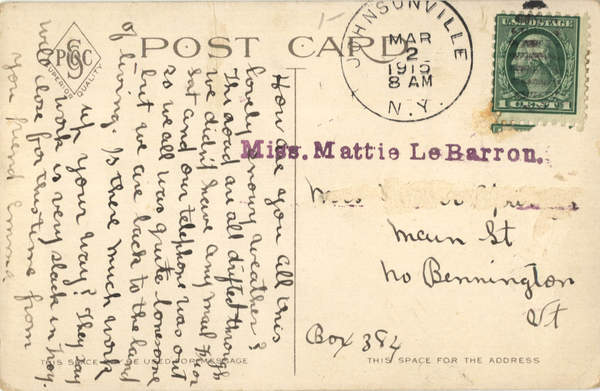 POST CARD
P S C
SUPERIOR QUALITY
JOHNSONVILLE
MAR
2
1915
8 AM
N.Y.
U.S. POSTAGE
1 CENT 1
How are you all this
lovely snowy weather?
The road an all drifted through
we didn't have any mail
Sat and our telephone was out
so we all was quite lonesome
but we are back to the land
of living. Is there much work
up your way? They say
work is very slack in Troy.
will close for this time from
you friend Emma
Miss. Mattie LeBarron.
Main St
No Bennington
Vt
Box 382
THIS SPACE TO BE USED FOR MESSAGE
THIS SPACE FOR THE ADDRESS